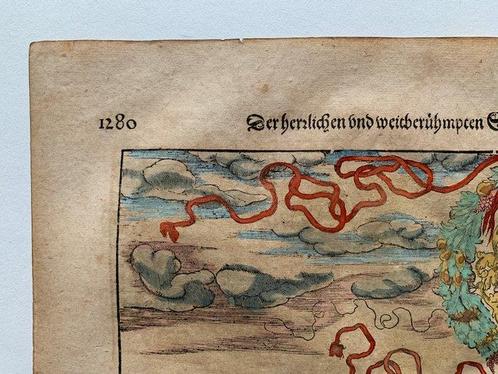 1280
Der herrlichen vnd weitberühmpten S